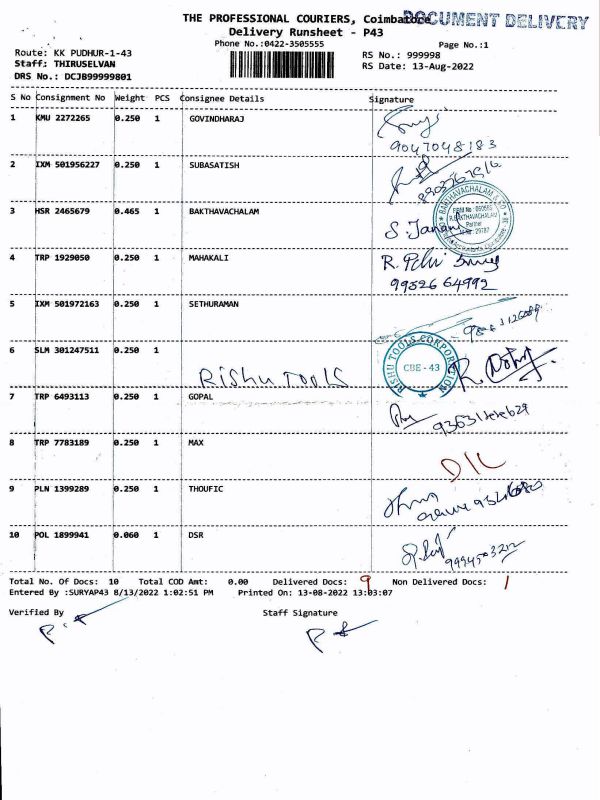 THE PROFESSIONAL COURIERS, Coimbatore
DOCUMENT DELIVERY
Delivery Runsheet - P43
Phone No.:0422-3505555
Page No.:1
Route: KK PUDHUR-1-43
RS No.: 999998
Staff: THIRUSELVAN
RS Date: 13-Aug-2022
DRS No.: DCJB99999801
S No Consignment No Weight PCS Consignee Details Signature
1 KMU 2272265 0.250 1 GOVINDHARAJ
9047048183
2 IXM 501956227 0.250 1 SUBASATISH
3 HSR 2465679 0.465 1 BAKTHAVACHALAM
BAKTHAVACHALAM & CO
R.BAKTHAVACHALAM
Partner
S. Janani
4 TRP 1929050 0.250 1 MAHAKALI
R. 
99526 64992
5 IXM 501972163 0.250 1 SETHURAMAN
6 SLM 301247511 0.250 1
RISHU TOOLS
RISHU TOOLS CORPORATION
CBE - 43
7 TRP 6493113 0.250 1 GOPAL
8 TRP 7783189 0.250 1 MAX
D/L
9 PLN 1399289 0.250 1 THOUFIC
10 POL 1899941 0.060 1 DSR
Total No. Of Docs: 10 Total COD Amt: 0.00 Delivered Docs: 9 Non Delivered Docs: 1
Entered By :SURYAP43 8/13/2022 1:02:51 PM Printed On: 13-08-2022 13:03:07
Verified By Staff Signature